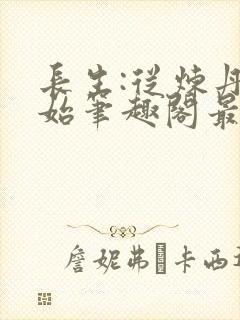 長生:從煉丹
始筆趣閣最
詹妮弗�卡西